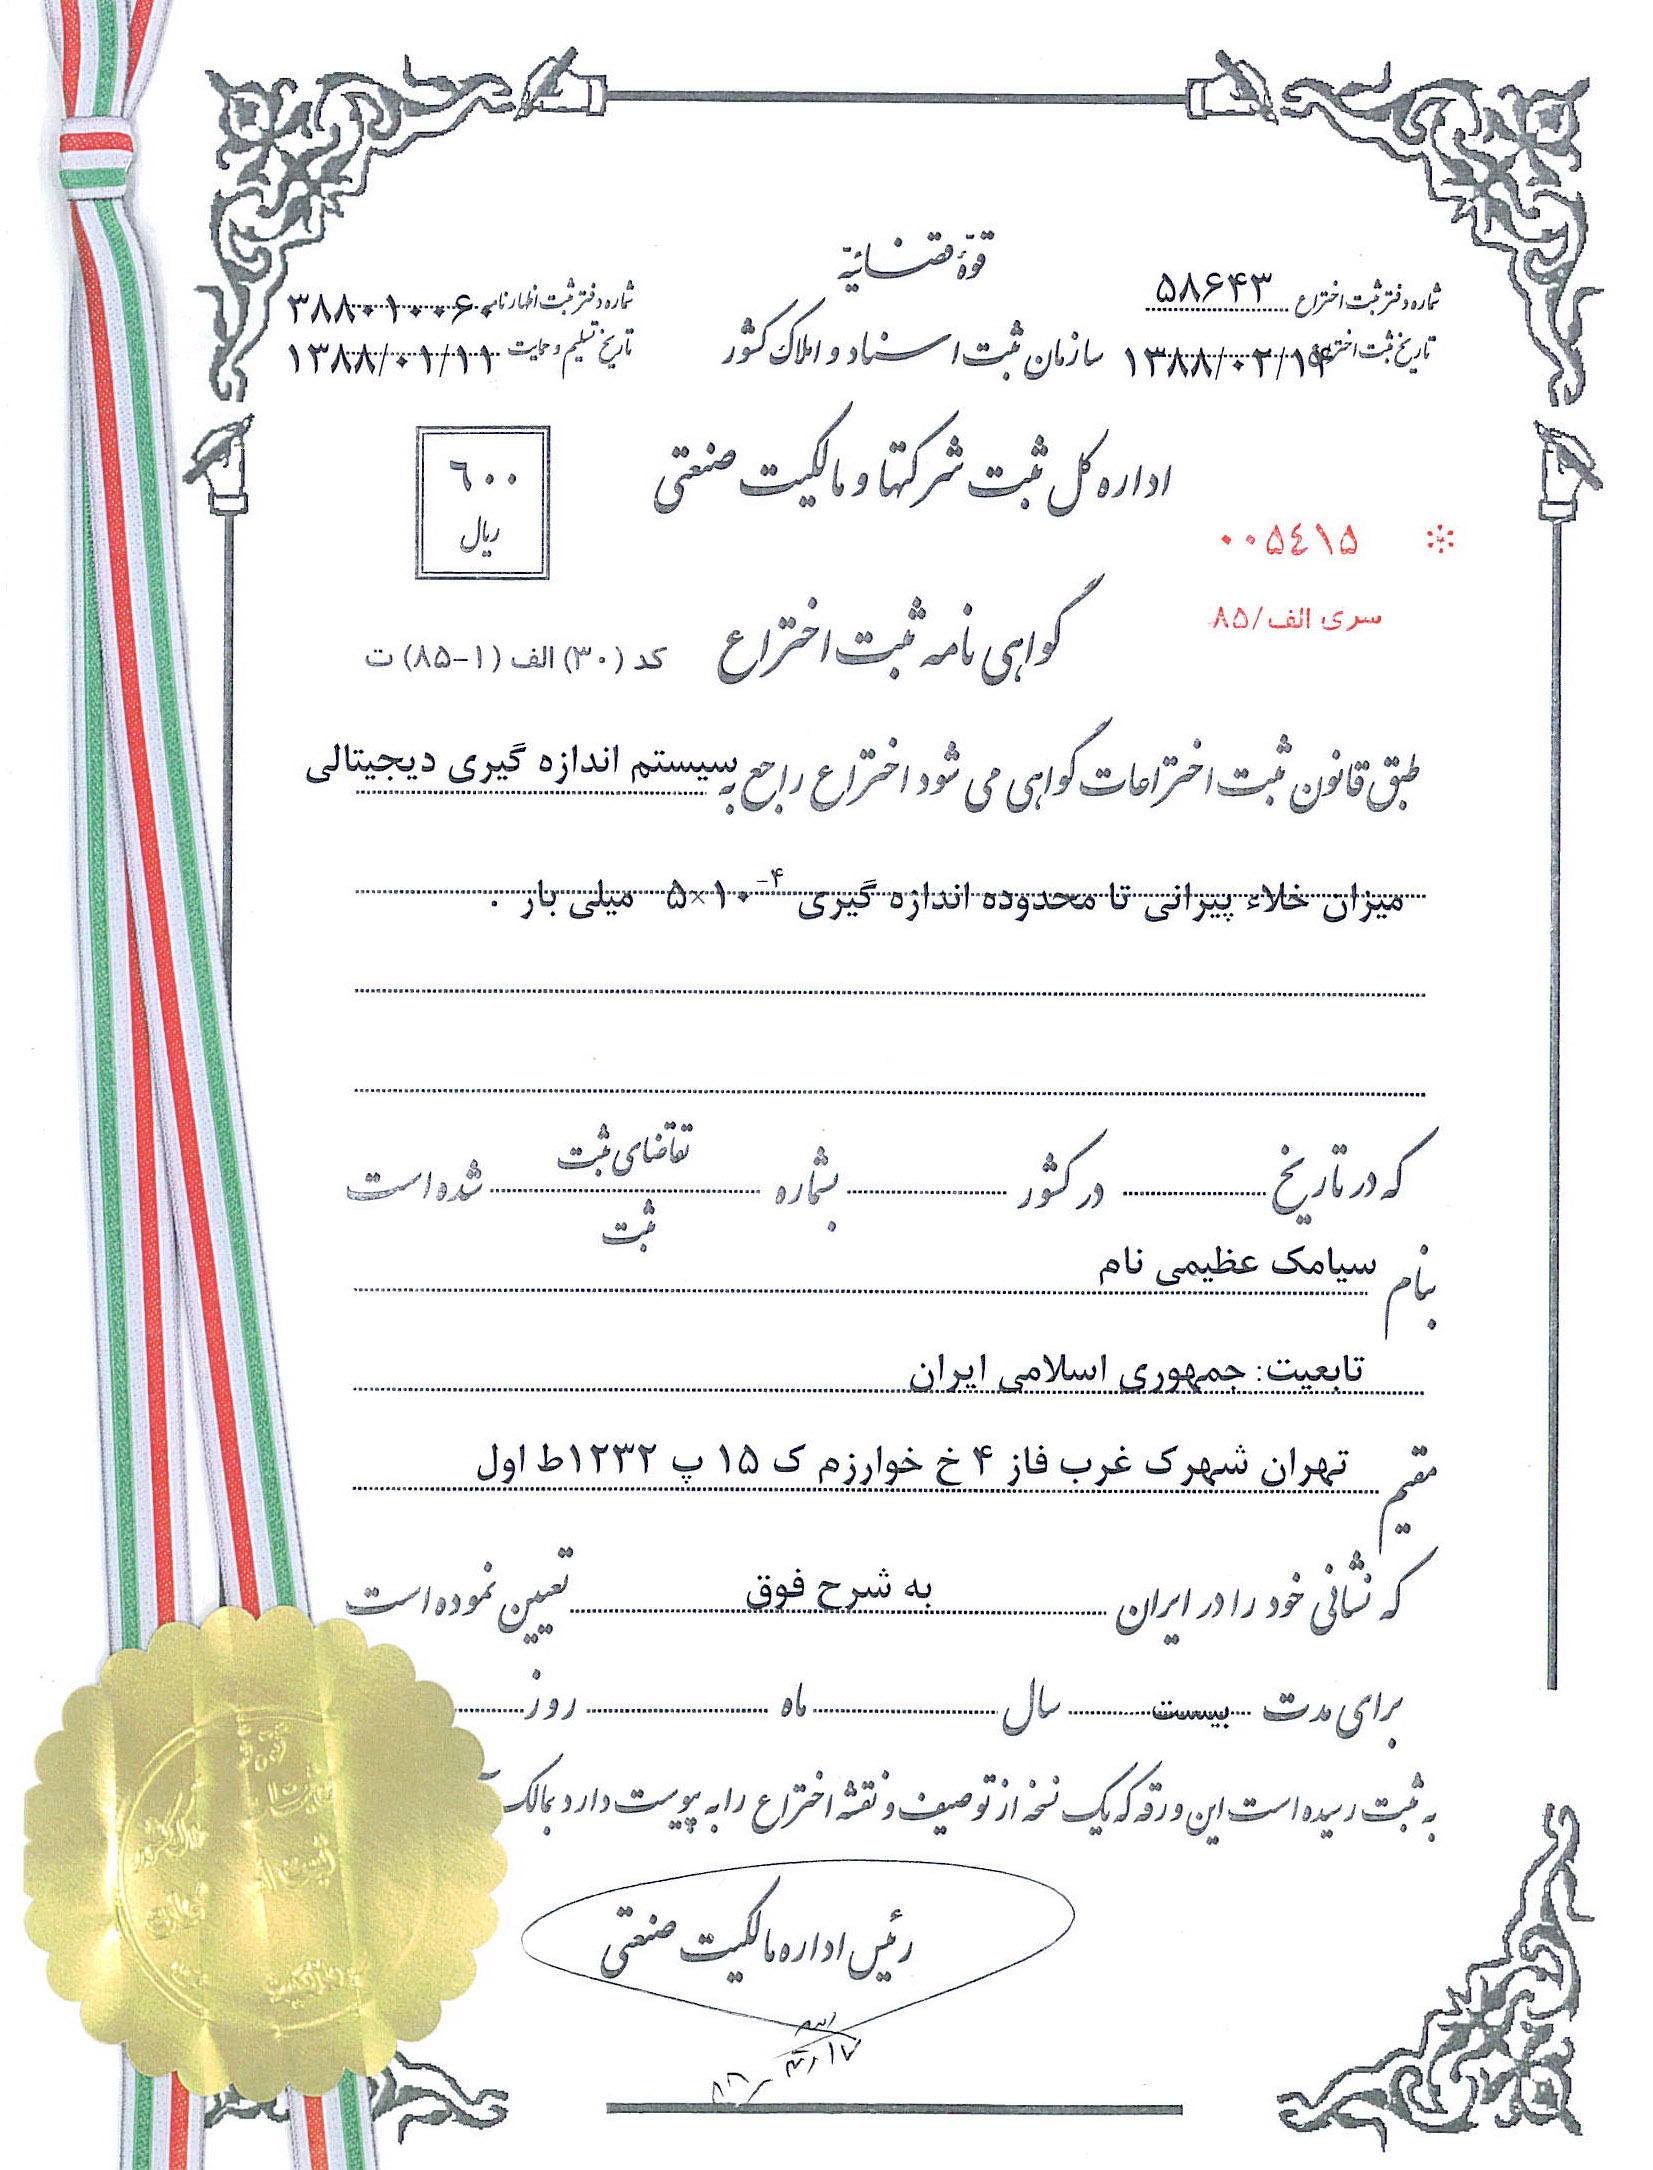 قوّۀ قضائیّه
شماره دفتر ثبت اختراع ۵۸۶۴۳
شماره دفتر ثبت اظهارنامه ۳۸۸۰۱۰۰۶۰
سازمان ثبت اسناد و املاک کشور
تاریخ ثبت اختراع ۱۳۸۸/۰۲/۱۴
تاریخ تسلیم و حمایت ۱۳۸۸/۰۱/۱۱
اداره کل ثبت شرکتها و مالکیت صنعتی
۶۰۰
ریال
۰۰۵۴۱۵
سری الف/۸۵
گواهی نامه ثبت اختراع
کد (۳۰) الف (۱-۸۵) ت
طبق قانون ثبت اختراعات گواهی می شود اختراع راجع به سیستم اندازه گیری دیجیتالی
میزان خلاء پیرانی تا محدوده اندازه گیری ۵×۱۰⁻⁴ میلی بار .
که در تاریخ در کشور بشماره تقاضای ثبت شده است
ثبت
بنام سیامک عظیمی نام
تابعیت: جمهوری اسلامی ایران
مقیم تهران شهرک غرب فاز ۴ خ خوارزم ک ۱۵ پ ۱۲۳۲ط اول
که نشانی خود را در ایران به شرح فوق تعیین نموده است
برای مدت بیست سال ماه روز
به ثبت رسیده است این ورقه که یک نسخه از توصیف و نقشه اختراع را به پیوست دارد بمالک
رئیس اداره مالکیت صنعتی